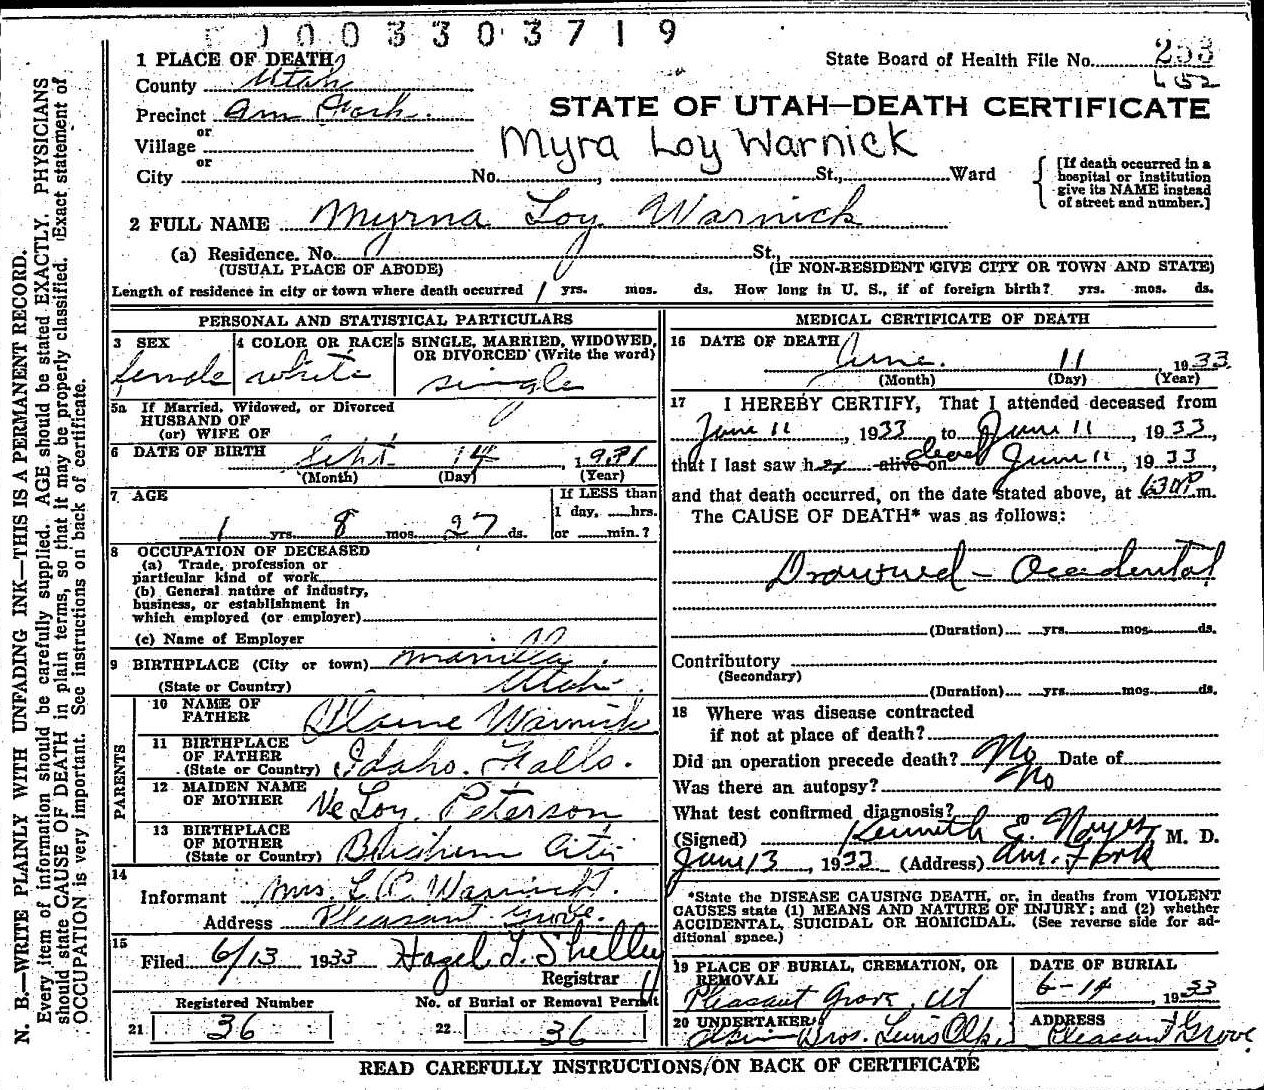 0003303719
1 PLACE OF DEATH
State Board of Health File No. 
County Utah
652
Precinct Am Fork.
STATE OF UTAH—DEATH CERTIFICATE
or
Village
Myra Loy Warnick
or
City No. , St., Ward
[If death occurred in a hospital or institution give its NAME instead of street and number.]
2 FULL NAME Myrna Loy Warnick
(a) Residence. No. St.,
(USUAL PLACE OF ABODE) (IF NON-RESIDENT GIVE CITY OR TOWN AND STATE)
Length of residence in city or town where death occurred 1 yrs. mos. ds. How long in U. S., if of foreign birth? yrs. mos. ds.
PERSONAL AND STATISTICAL PARTICULARS
3 SEX
female
4 COLOR OR RACE
white
5 SINGLE, MARRIED, WIDOWED,
OR DIVORCED (Write the word)
single
5a If Married, Widowed, or Divorced
HUSBAND OF
(or) WIFE OF
6 DATE OF BIRTH Sept 14, 1931
(Month) (Day) (Year)
7 AGE
1 yrs. 8 mos. 27 ds.
If LESS than
1 day, hrs.
or min.?
8 OCCUPATION OF DECEASED
(a) Trade, profession or
particular kind of work
(b) General nature of industry,
business, or establishment in
which employed (or employer)
(c) Name of Employer
9 BIRTHPLACE (City or town) Manilla
(State or Country) Utah
PARENTS
10 NAME OF
FATHER Blaine Warnick
11 BIRTHPLACE
OF FATHER
(State or Country) Idaho Falls.
12 MAIDEN NAME
OF MOTHER Ve Loy Peterson
13 BIRTHPLACE
OF MOTHER
(State or Country) Brigham City
14
Informant Mrs L. C. Warnick.
Address Pleasant Grove.
15
Filed 6/13 1933 Hazel T. Shelley
Registrar
Registered Number
21 36
No. of Burial or Removal Permit
22 36
MEDICAL CERTIFICATE OF DEATH
16 DATE OF DEATH June 11, 1933
(Month) (Day) (Year)
17 I HEREBY CERTIFY, That I attended deceased from
June 11, 1933 to June 11, 1933,
that I last saw her alive on dead June 11, 1933,
and that death occurred, on the date stated above, at 630P m.
The CAUSE OF DEATH* was as follows:
Drowned - Accidental
(Duration) yrs. mos. ds.
Contributory
(Secondary)
(Duration) yrs. mos. ds.
18 Where was disease contracted
if not at place of death?
Did an operation precede death? No Date of
Was there an autopsy? No
What test confirmed diagnosis?
(Signed) Kenneth E. Noyes M. D.
June 13, 1933 (Address) Am. Fork
*State the DISEASE CAUSING DEATH, or, in deaths from VIOLENT
CAUSES state (1) MEANS AND NATURE OF INJURY; and (2) whether
ACCIDENTAL, SUICIDAL OR HOMICIDAL. (See reverse side for ad-
ditional space.)
19 PLACE OF BURIAL, CREMATION, OR
REMOVAL
Pleasant Grove, Ut
DATE OF BURIAL
6-14, 1933
20 UNDERTAKER
Bros.
ADDRESS
Pleasant Grove
READ CAREFULLY INSTRUCTIONS ON BACK OF CERTIFICATE
N. B.—WRITE PLAINLY WITH UNFADING INK—THIS IS A PERMANENT RECORD.
Every item of information should be carefully supplied. AGE should be stated EXACTLY. PHYSICIANS
should state CAUSE OF DEATH in plain terms, so that it may be properly classified. Exact statement of
OCCUPATION is very important. See instructions on back of certificate.